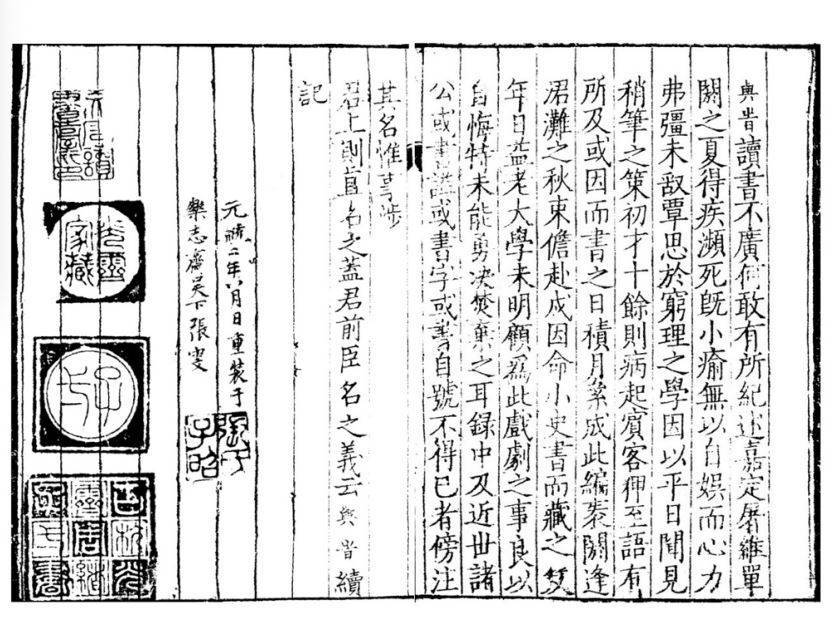 與旹讀書不廣何敢有所紀述嘉定屠維單
閼之夏得疾瀕死旣小瘉無以自娛而心力
弗彊未敢覃思於窮理之學因以平日聞見
稍筆之策初才十餘則病起賓客狎至語有
所及或因而書之日積月絫成此編裘閼逢
涒灘之秋束儋赴戍因命小史書而藏之笈
年日益老大學未明顧為此戲劇之事良以
自悔特未能勇决焚棄之耳錄中及近世諸
公或書諡或書字或書自號不得已者傍注
其名惟事涉
君上則直名之蓋君前臣名之義云與旹續
記
元統二年八月日重裝于
樂志齋吳下張雯